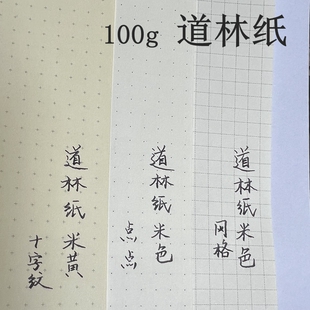 100g 道林纸
道林纸 米黄
十字纹
道林纸 米色
点点
道林纸 米色
网格